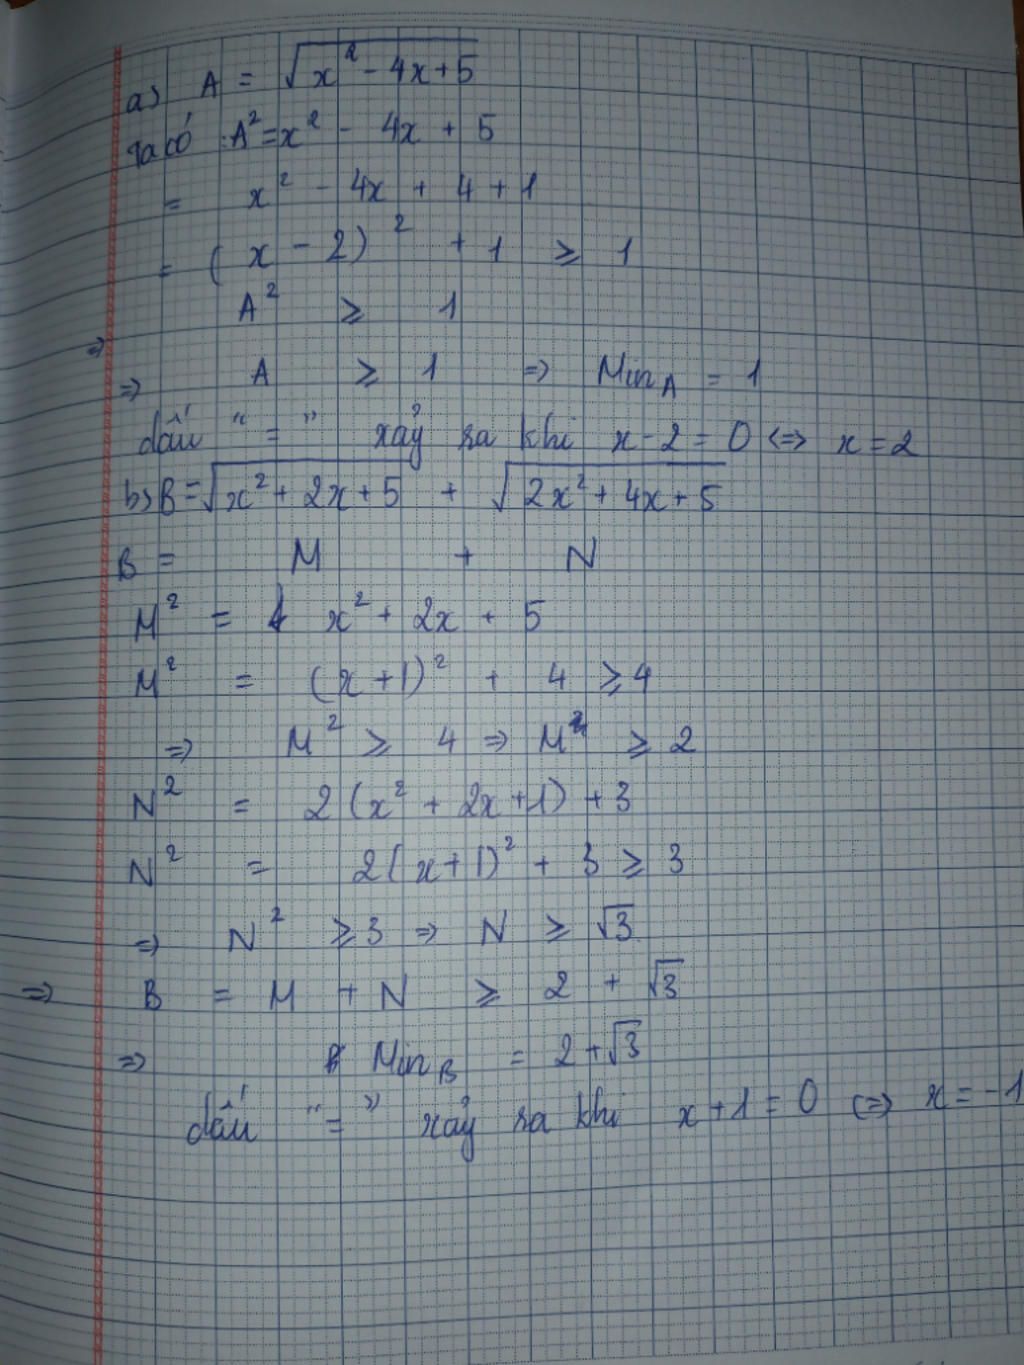 a) A = √(x² - 4x + 5)
Ta có : A² = x² - 4x + 5
= x² - 4x + 4 + 1
= (x - 2)² + 1 ≥ 1
⇒ A² ≥ 1
⇒ A ≥ 1 ⇒ Min_A = 1
dấu " = " xảy ra khi x - 2 = 0 ⇔ x = 2
b) B = √(x² + 2x + 5) + √(2x² + 4x + 5)
B = M + N
M² = x² + 2x + 5
M² = (x + 1)² + 4 ≥ 4
⇒ M² ≥ 4 ⇒ M ≥ 2
N² = 2(x² + 2x + 1) + 3
N² = 2(x + 1)² + 3 ≥ 3
⇒ N² ≥ 3 ⇒ N ≥ √3
⇒ B = M + N ≥ 2 + √3
⇒ Min_B = 2 + √3
dấu " = " xảy ra khi x + 1 = 0 ⇔ x = -1